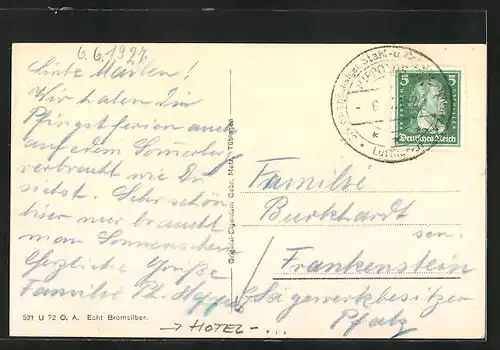 6. 6. 1927
Liebe Marlen!
Wir haben die
Pfingstferien auch
auf dem Sommerberg
verbracht wie Du
siehst. Sehr schön
hier nur braucht
man Sonnenschein
Herzliche Grüße
Familie Th.
Original-Eigentum Gebr. Metz, Tübingen
Stahl- u.
Luftkurort
5
5
Deutsches Reich
Familie
Burkhardt
sen.
Frankenstein
Sägewerkbesitzer
Pfalz
521 U 72 O. A. Echt Bromsilber.
→ HOTEL - ...